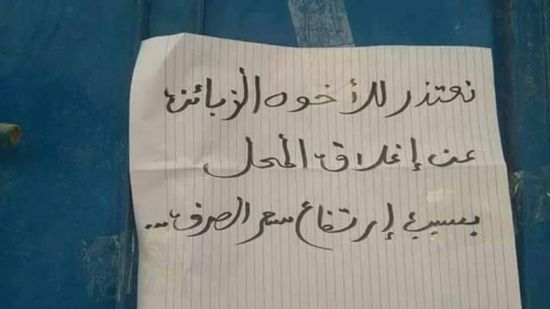 نعتذر للأخوه الزبائن
عن إغلاق المحل
بسبب إرتفاع سعر الصرف...